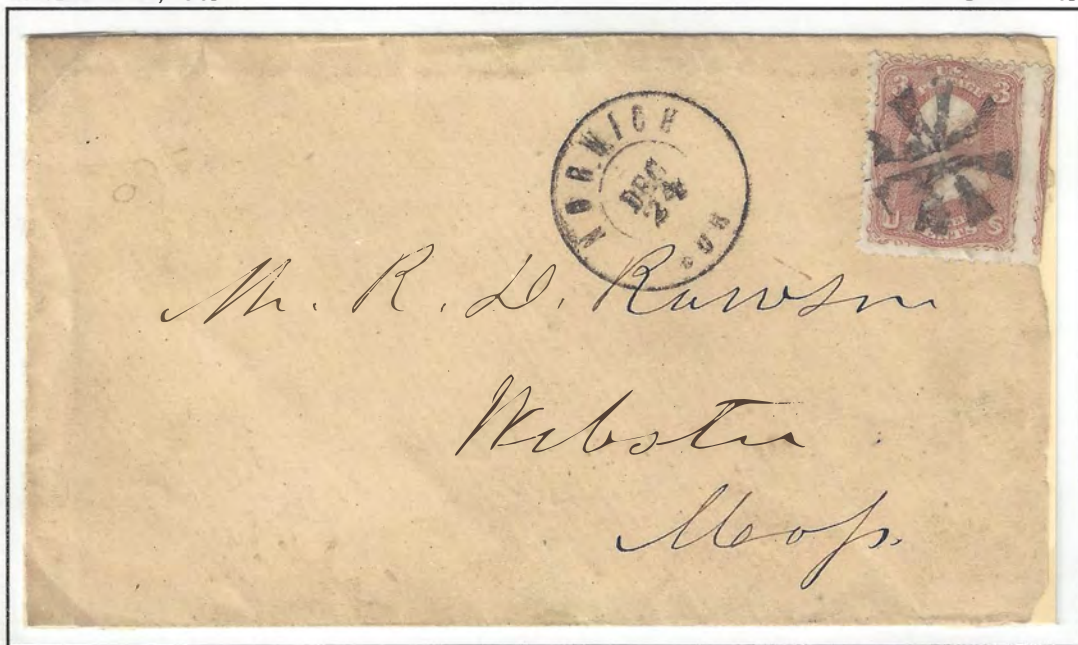 NORWICH
DEC
24
CON
3 3
U S
Mr. R. D. Rawson
Webster
Mass.